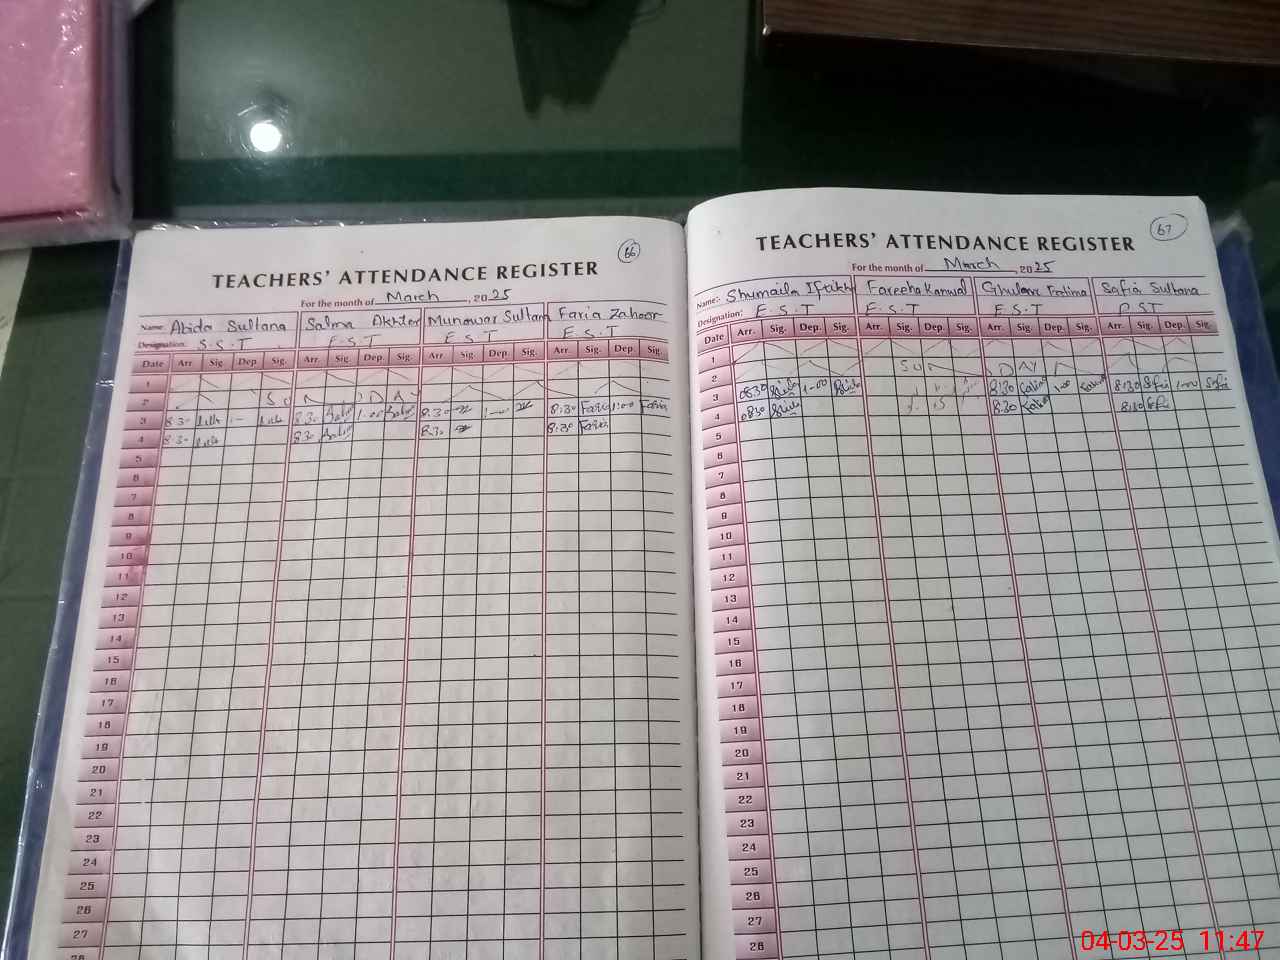 66
TEACHERS' ATTENDANCE REGISTER
For the month of March, 2025
Name: Abida Sultana Salma Akhter Munawar Sultana Faria Zahoor
Designation: S.S.T E.S.T E.S.T E.S.T
Date Arr. Sig. Dep. Sig. Arr. Sig. Dep. Sig. Arr. Sig. Dep. Sig. Arr. Sig. Dep. Sig.
1
2 SUNDAY
3 8:30 8:30 1-00 8:30 1-00 8:30 Faria 1:00 Faria
4 8:30 8:30 8:30 8:30 Faria
5
6
7
8
9
10
11
12
13
14
15
16
17
18
19
20
21
22
23
24
25
26
27
28
67
TEACHERS' ATTENDANCE REGISTER
For the month of March, 2025
Name:- Shumaila Iftikhar Fareeha Kanwal Ghulam Fatima Safia Sultana
Designation: E.S.T E.S.T E.S.T P.ST
Date Arr. Sig. Dep. Sig. Arr. Sig. Dep. Sig. Arr. Sig. Dep. Sig. Arr. Sig. Dep. Sig.
1
2 SUNDAY
3 0830 1-00 8:30 1:00 8:30 Safia 1:00 Safia
4 0830 8:30 8:30 Safia
5
6
7
8
9
10
11
12
13
14
15
16
17
18
19
20
21
22
23
24
25
26
27
28
04-03-25 11:47